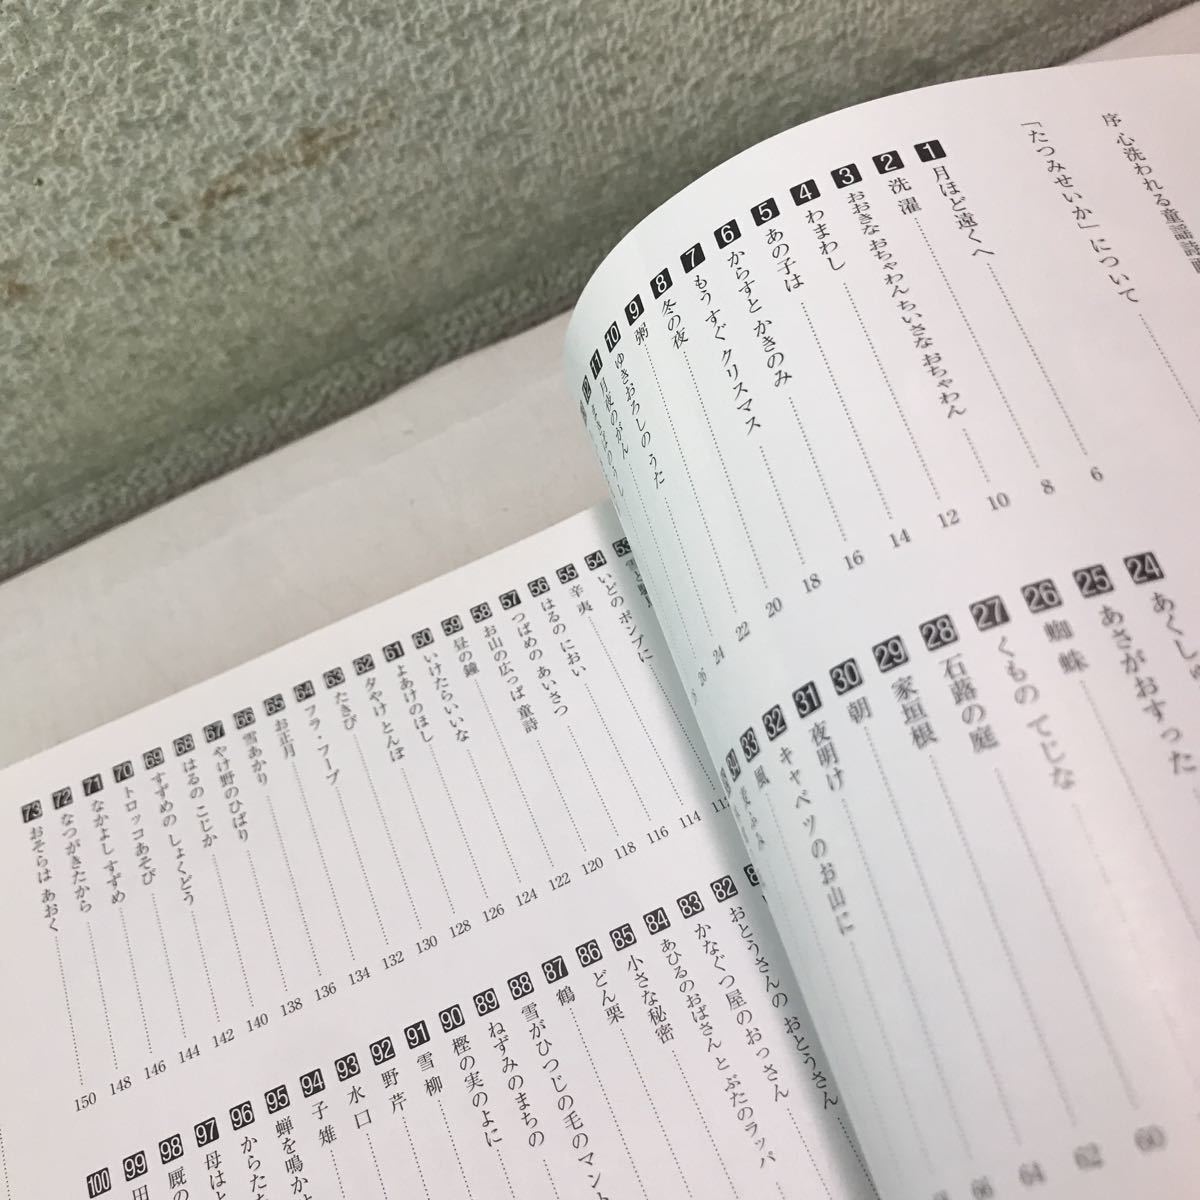 序 心洗われる童謡詩画
「たつみせいか」について
1 月ほど遠くへ 6
2 洗濯 8
3 おおきな おちゃわん ちいさな おちゃわん 10
4 わまわし 12
5 あの子は 14
6 からすと かきのみ 16
7 もう すぐ クリスマス 18
8 冬の夜 20
9 粥 22
10 ゆきおろしの うた 24
11 月夜のがん 26
12
24 あくし
25 あさがおすった
26 蜘蛛
27 くもの てじな
28 石蕗の庭 60
29 家垣根 62
30 朝 64
31 夜明け 66
32 キャベツのお山に
33 風
34
53
54 いどの ポンプに
55 辛夷 114
56 はるの におい 116
57 つばめの あいさつ 118
58 お山の広っぱ 童詩 120
59 昼の鐘 122
60 いけたらいいな 124
61 よあけのほし 126
62 夕やけ とんぼ 128
63 たきび 130
64 フラ・フープ 132
65 お正月 134
66 雪あかり 136
67 やけ野のひばり 138
68 はるの こじか 140
69 すずめの しょくどう 142
70 トロッコあそび 144
71 なかよし すずめ 146
72 なつがきたから 148
73 おそらは あおく 150
82 おとうさんの おとうさん
83 かなぐつ屋のおっさん
84 あひるのおばさんと ぶたのラッパ
85 小さな秘密
86 どん栗
87 鶴
88 雪がひつじの毛のマント
89 ねずみのまちの
90 樫の実のよに
91 雪柳
92 野芹
93 水口
94 子雉
95 蝉を鳴か
96 からたち
97 母はと
98 厩の
99 田
100